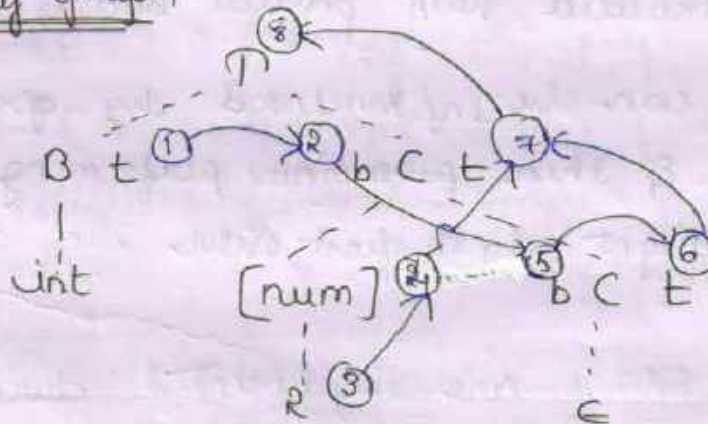 8
T
B t 1 2 b C t 7
int [num] 4 5 b C t 6
2 3 ε